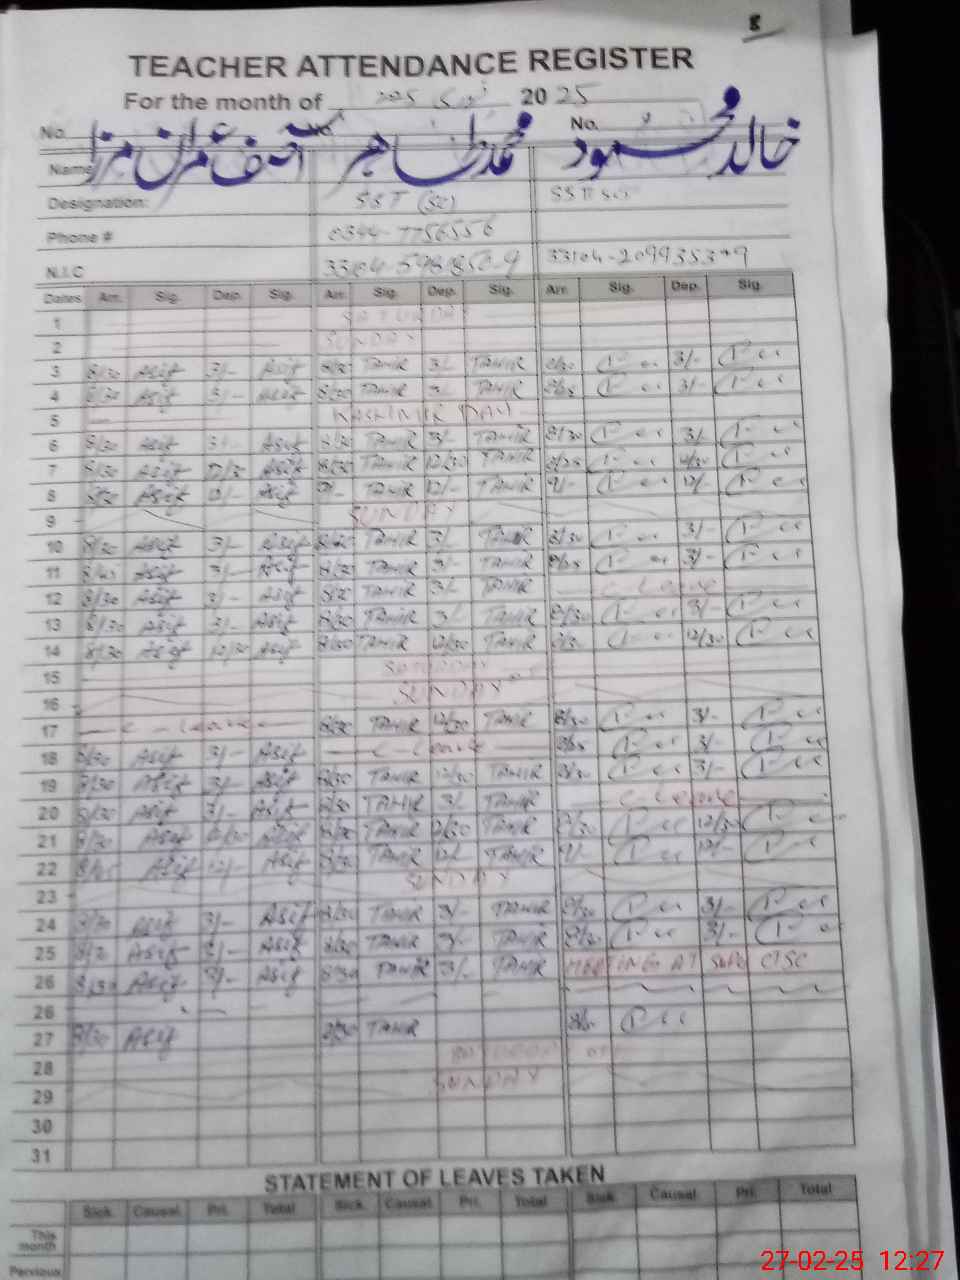 8
TEACHER ATTENDANCE REGISTER
For the month of 2025 فروری 2025
No. No. No.
Name آصف عمران مرزا محمد طاہر خالد محمود
Designation: SST (SC) SST SC
Phone # 0344-7756556
N.I.C
Dates Arr. Sig. Dep. Sig. Arr. Sig. Dep. Sig. Arr. Sig. Dep. Sig.
1 SATURDAY
2 SUNDAY
3 8/30 Asif 3/- Asif 8/30 TAHIR 3/- TAHIR 8/30 3/-
4 8/30 Asif 3/- Asif 8/30 TAHIR 3/- TAHIR 3/-
5 KASHMIR DAY
6 8/30 Asif 3/- Asif 8/30 TAHIR 3/- TAHIR 8/30 3/-
7 8/30 Asif 12/30 Asif 8/30 TAHIR 12/30 TAHIR 8/25
8 Asif 12/- Asif 9/- TAHIR 12/- TAHIR 9/- 12/-
9 SUNDAY
10 8/30 Asif 3/- Asif 8/30 TAHIR 3/- TAHIR 8/30 3/-
11 Asif 3/- Asif 8/30 TAHIR 3/- TAHIR 8/25 3/-
12 8/30 Asif 3/- Asif 8/30 TAHIR 3/- TAHIR C Leave
13 8/30 Asif 3/- Asif 8/30 TAHIR 3/- TAHIR 8/30 3/-
14 8/30 Asif 12/30 Asif 8/30 TAHIR 12/30 TAHIR 12/30
15 SATURDAY
16 SUNDAY
17 C-Leave 8/30 TAHIR 12/30 TAHIR 8/30 3/-
18 8/30 Asif 3/- Asif C-Leave 3/-
19 8/30 Asif 3/- Asif 8/30 TAHIR 12/30 TAHIR 3/-
20 8/30 Asif 3/- Asif 8/30 TAHIR 3/- TAHIR C Leave
21 8/30 Asif 12/30 Asif 8/30 TAHIR 12/30 TAHIR 8/30 12/30
22 Asif 12/- Asif 8/30 TAHIR 12/- TAHIR 9/- 12/-
23 SUNDAY
24 8/30 Asif 3/- Asif 8/30 TAHIR 3/- TAHIR 8/30 3/-
25 Asif 3/- Asif 8/30 TAHIR 3/- TAHIR 8/30 3/-
26 8/30 Asif 3/- Asif 8/30 TAHIR 3/- TAHIR MEETING AT
26
27 8/30 Asif 8/30 TAHIR
28
29 SUNDAY
30
31
STATEMENT OF LEAVES TAKEN
Sick. Causal. Pri. Total Sick. Causal. Pri. Total Sick. Causal. Pri. Total
This month
Pervious
27-02-25 12:27